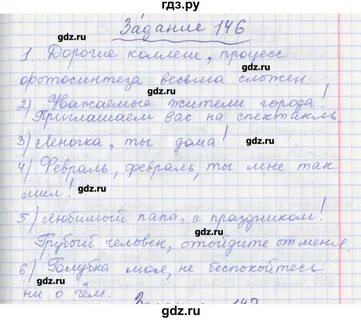 Задание 146
1. Дорогие коллеги, процесс
фотосинтеза весьма сложен
2) Уважаемые жители города!
Приглашаем вас на спектакль.
3) Леночка, ты дома!
4) Февраль, февраль, ты мне так
мил!
5) Любимый папа, с праздником!
Грубый человек, отойдите от меня.
6) Голубка моя, не беспокойтесь
ни о чём.